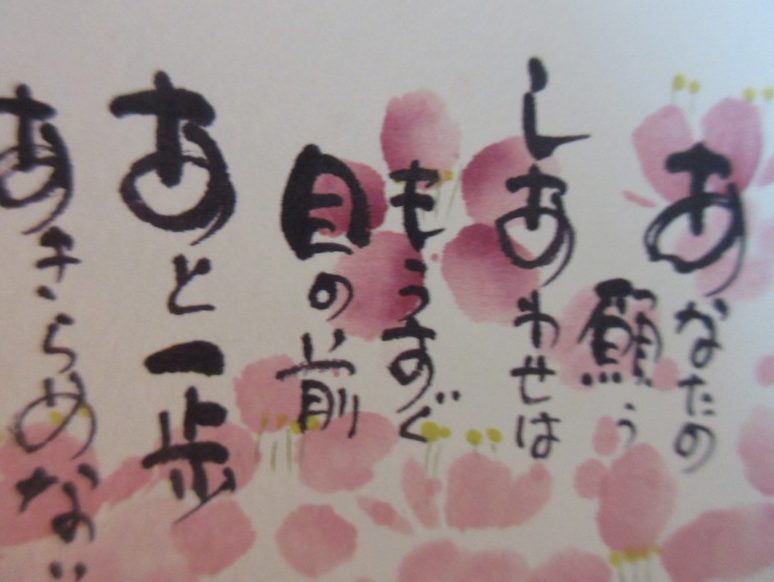 あなたの
願う
しあわせは
もうすぐ
目の前
あと一歩
あきらめない